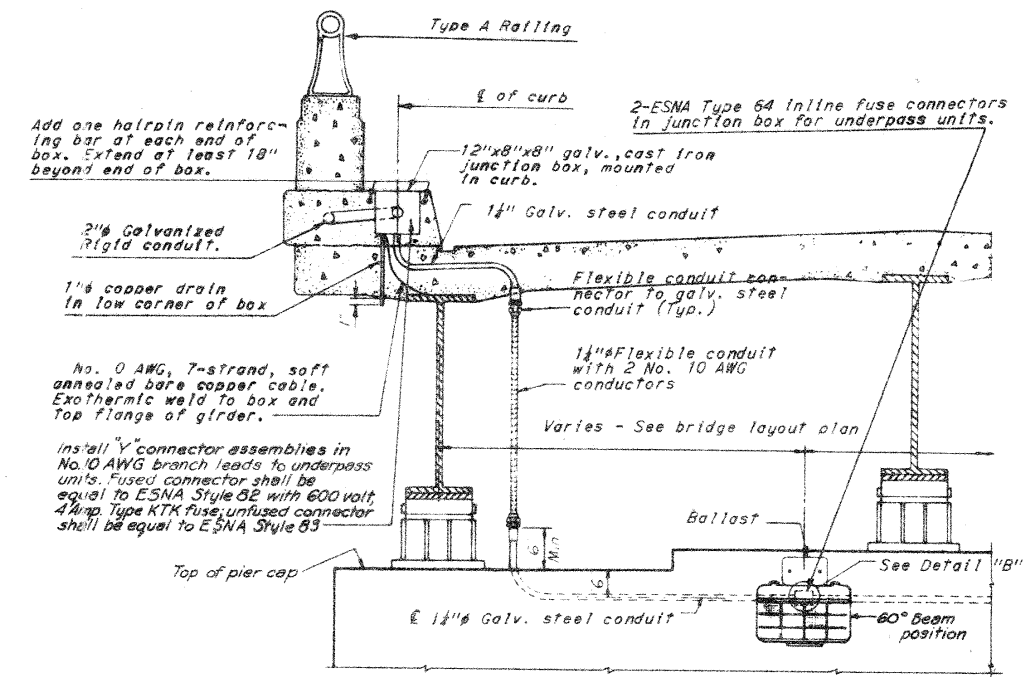 Type A Railing
℄ of curb
2-ESNA Type 64 inline fuse connectors
in junction box for underpass units.
Add one hairpin reinforc-
ing bar at each end of
box. Extend at least 18"
beyond end of box.
12"x8"x8" galv., cast iron
junction box, mounted
in curb.
1¼" Galv. steel conduit
2"ϕ Galvanized
Rigid conduit.
1"ϕ copper drain
in low corner of box
1"
Flexible conduit con-
nector to galv. steel
conduit (Typ.)
1¼"ϕ Flexible conduit
with 2 No. 10 AWG
conductors
No. 0 AWG, 7-strand, soft
annealed bare copper cable.
Exothermic weld to box and
top flange of girder.
Varies - See bridge layout plan
Install "Y" connector assemblies in
No.10 AWG branch leads to underpass
units. Fused connector shall be
equal to ESNA Style 82 with 600 volt,
4 Amp. Type KTK fuse; unfused connector
shall be equal to ESNA Style 83
Ballast
6
Min.
Top of pier cap
6
See Detail "B"
℄ 1¼"ϕ Galv. steel conduit
60° Beam
position